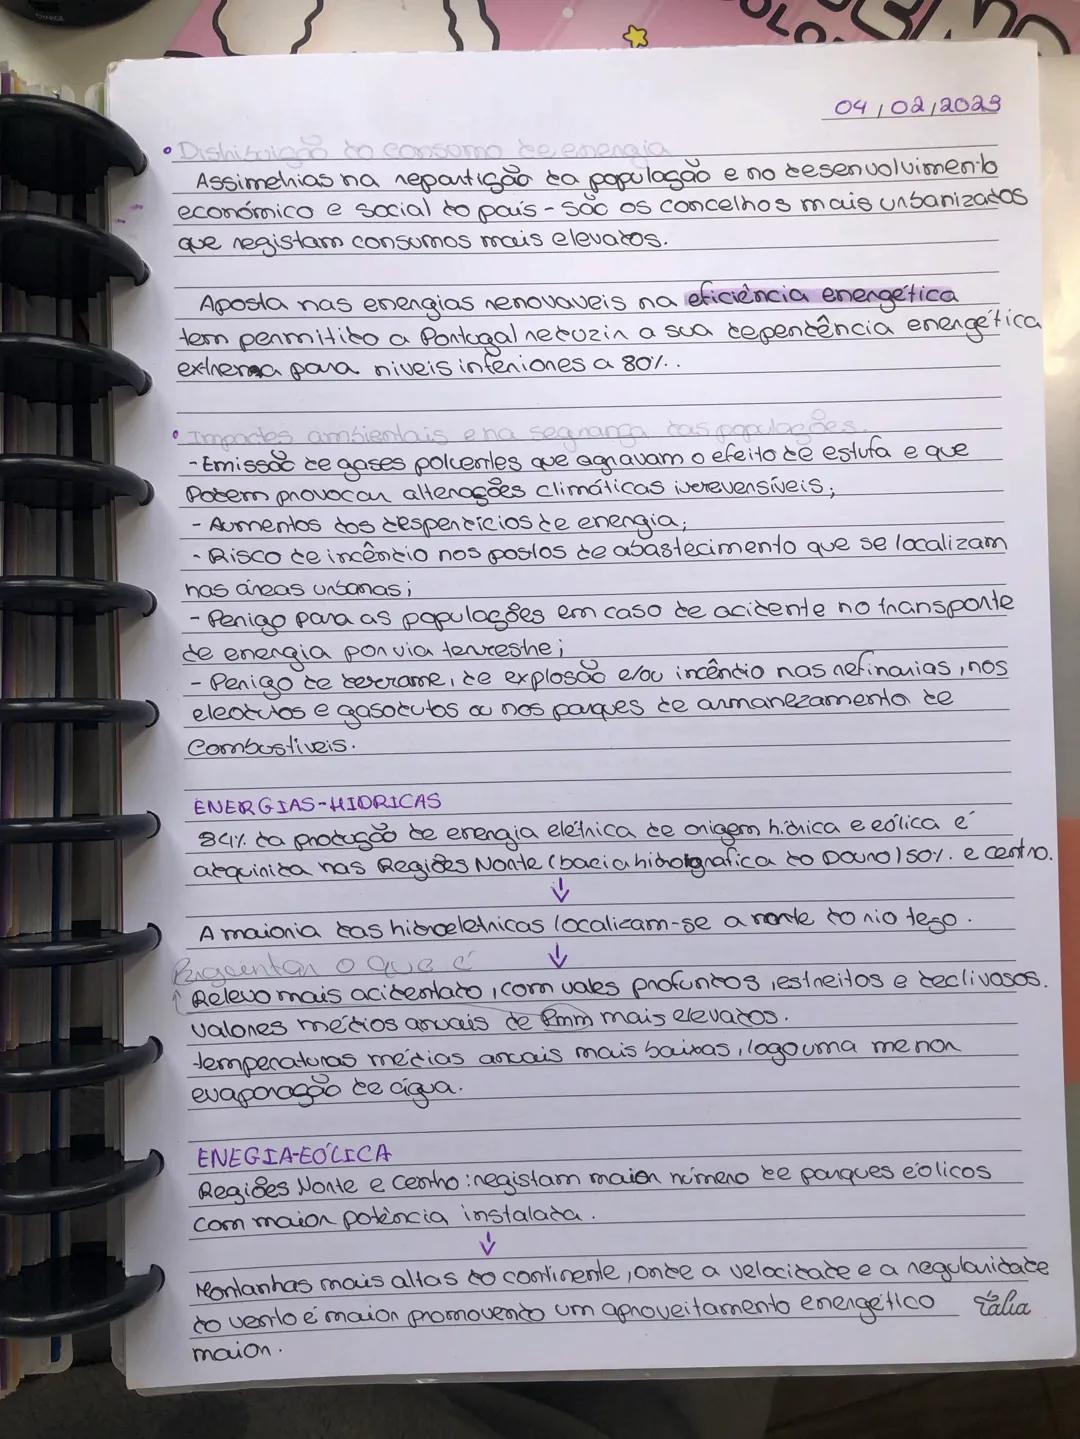 04/02/2023
• Distribuição do consumo de energia
Assimetrias na repartição da população e no desenvolvimento
económico e social do país - são os concelhos mais urbanizados
que registam consumos mais elevados.
Aposta nas energias renovaveis na eficiência energética
tem permitido a Portugal reduzir a sua dependência energética
externa para niveis inferiores a 80%.
• Impactes ambientais e na segurança das populações.
- Emissão de gases poluentes que agravam o efeito de estufa e que
Podem provocar alterações climáticas irreversíveis;
- Aumentos dos desperdicios de energia;
- Risco de incêndio nos postos de abastecimento que se localizam
nas áreas urbanas;
- Perigo para as populações em caso de acidente no transporte
de energia por via terrestre;
- Perigo de derrame, de explosão e/ou incêndio nas refinarias, nos
oleodutos e gasodutos ou nos parques de armanezamento de
Combustiveis.
ENERGIAS-HIDRICAS
84% da produção de energia elétrica de origem hídrica e eólica é
adquirida nas Regiões Norte (bacia hidrografica do Douro) 50%. e centro.
↓
A maioria das hidroeletricas localizam-se a norte do rio tejo.
↓
Perguntar o que é
↑ Relevo mais acidentado, com vales profundos, estreitos e declivosos.
valores médios anuais de Pmm mais elevados.
temperaturas médias anuais mais baixas, logo uma menor
evaporação de água.
ENEGIA-EÓLICA
Regiões Norte e Centro: registam maior número de parques eólicos
com maior potência instalada.
↓
Montanhas mais altas do continente, onde a velocidade e a regularidade
do vento é maior promovendo um aproveitamento energético
maior.
Tália